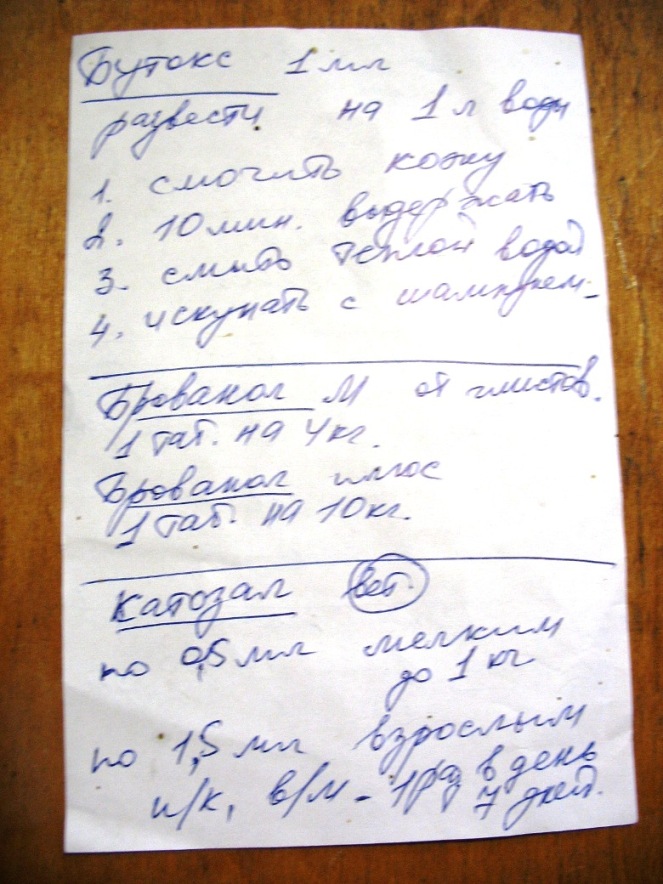 Бутокс 1 мл
развести на 1 л воды
1. смочить кожу
2. 10 мин. выдержать
3. смыть теплой водой
4. искупать с шампунем.
Брованол М от глистов.
1 таб. на 4 кг.
Брованол плюс
1 таб. на 10 кг.
Катозал вет.
по 0,5 мл мелким
до 1 кг
по 1,5 мл взрослым
п/к, в/м - 1 раз в день
7 дней.